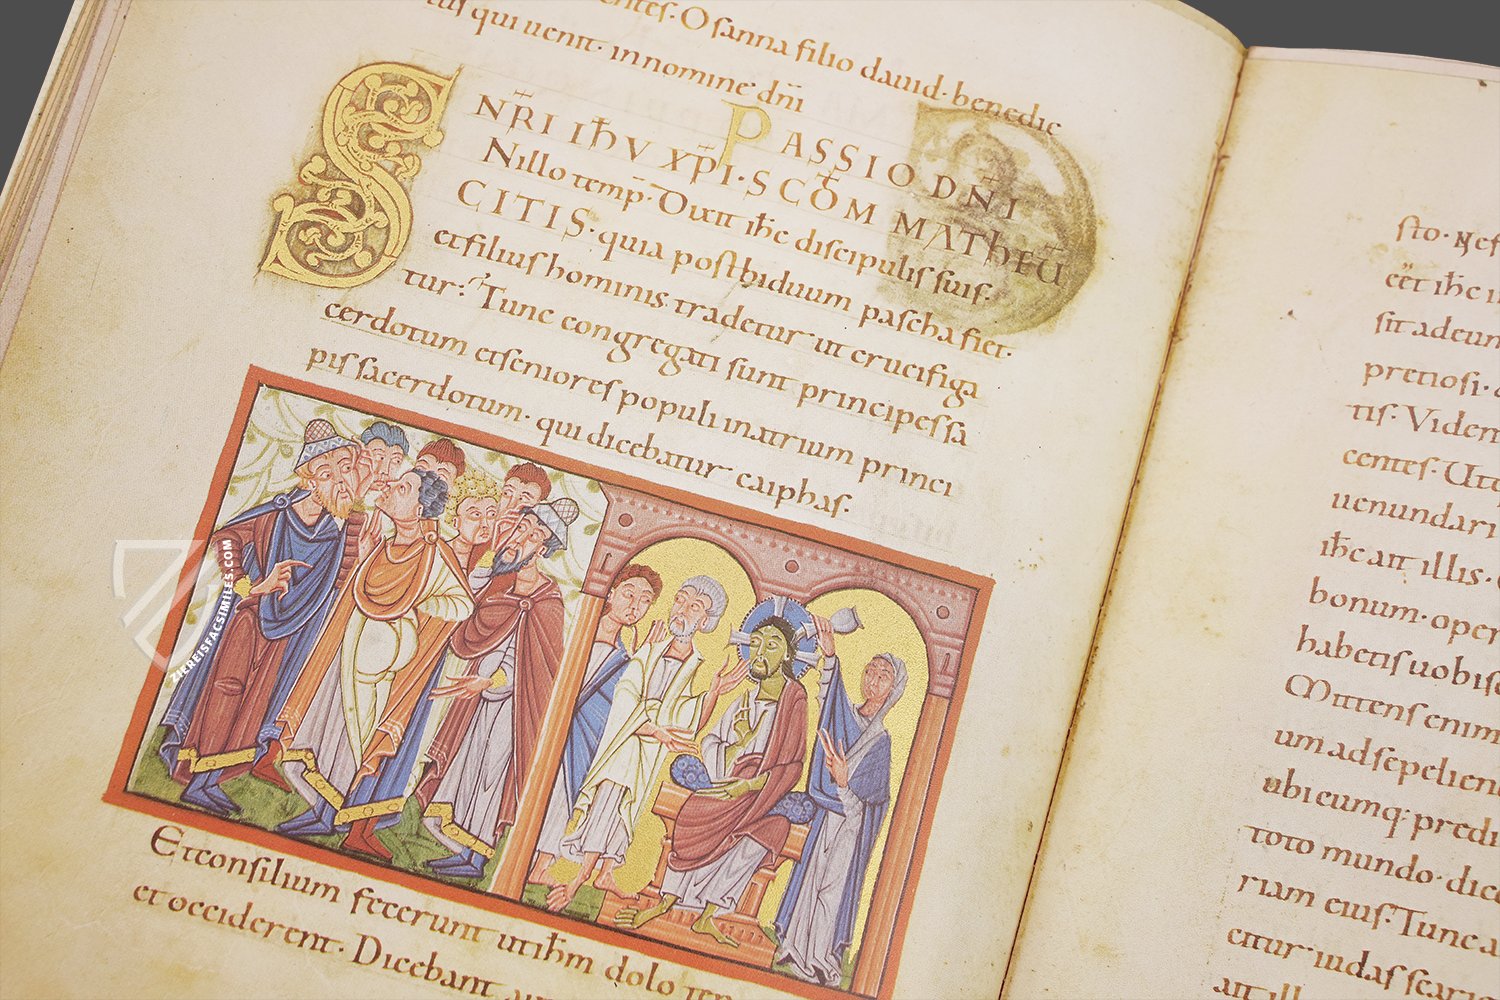 Osanna filio dauid· benedic
tus qui uenit· innomine dn̄i
PASSIO DN̄I
NR̄I IH̄V XP̄I· SCD̄M MATHEU̅
Nillo temp̄· Dixit ih̄c discipulis suis·
SCITIS· quia postbiduum pascha fiet·
etfilius hominis tradetur ut crucifiga
tur· Tunc congregati sunt principes sa
cerdotum etseniores populi inatrium princi
pis sacerdotum· qui dicebatur caiphas·
Etconsilium fecerunt utih̄m dolo
etocciderent· Dicebant
sto·
eēt ih̄c
sit adeum
pretiosi·
tis· Viden
centes· Ut
uenundari
ih̄c ait illis·
bonum· oper
habetis uobis
Mittens enim
um adsepelien
ubicumq; predi
toto mundo· dic
riam eius· Tunc a
citur iudas scario
ait ill
ZIEREISFACSIMILES.COM